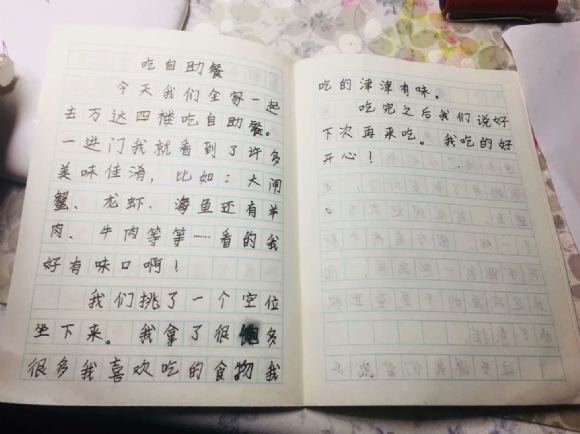 吃自助餐
今天我们全家一起
去万达四楼吃自助餐。
一进门我就看到了许多
美味佳淆，比如：大闸
蟹、龙虾、海鱼还有羊
肉、牛肉等等……看的我
好有味口啊！
我们挑了一个空位
坐下来。我拿了很多
很多我喜欢吃的食物我
吃的津津有味。
吃完之后我们说好
下次再来吃。我吃的好
开心！